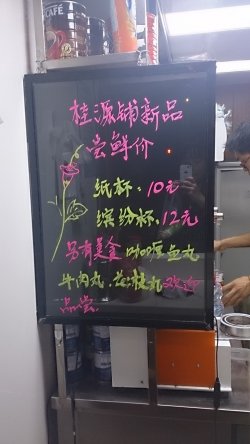 桂源铺新品
尝鲜价
纸杯．10元
缤纷杯．12元
另有美食 咖喱鱼丸
牛肉丸．花枝丸欢迎
品尝